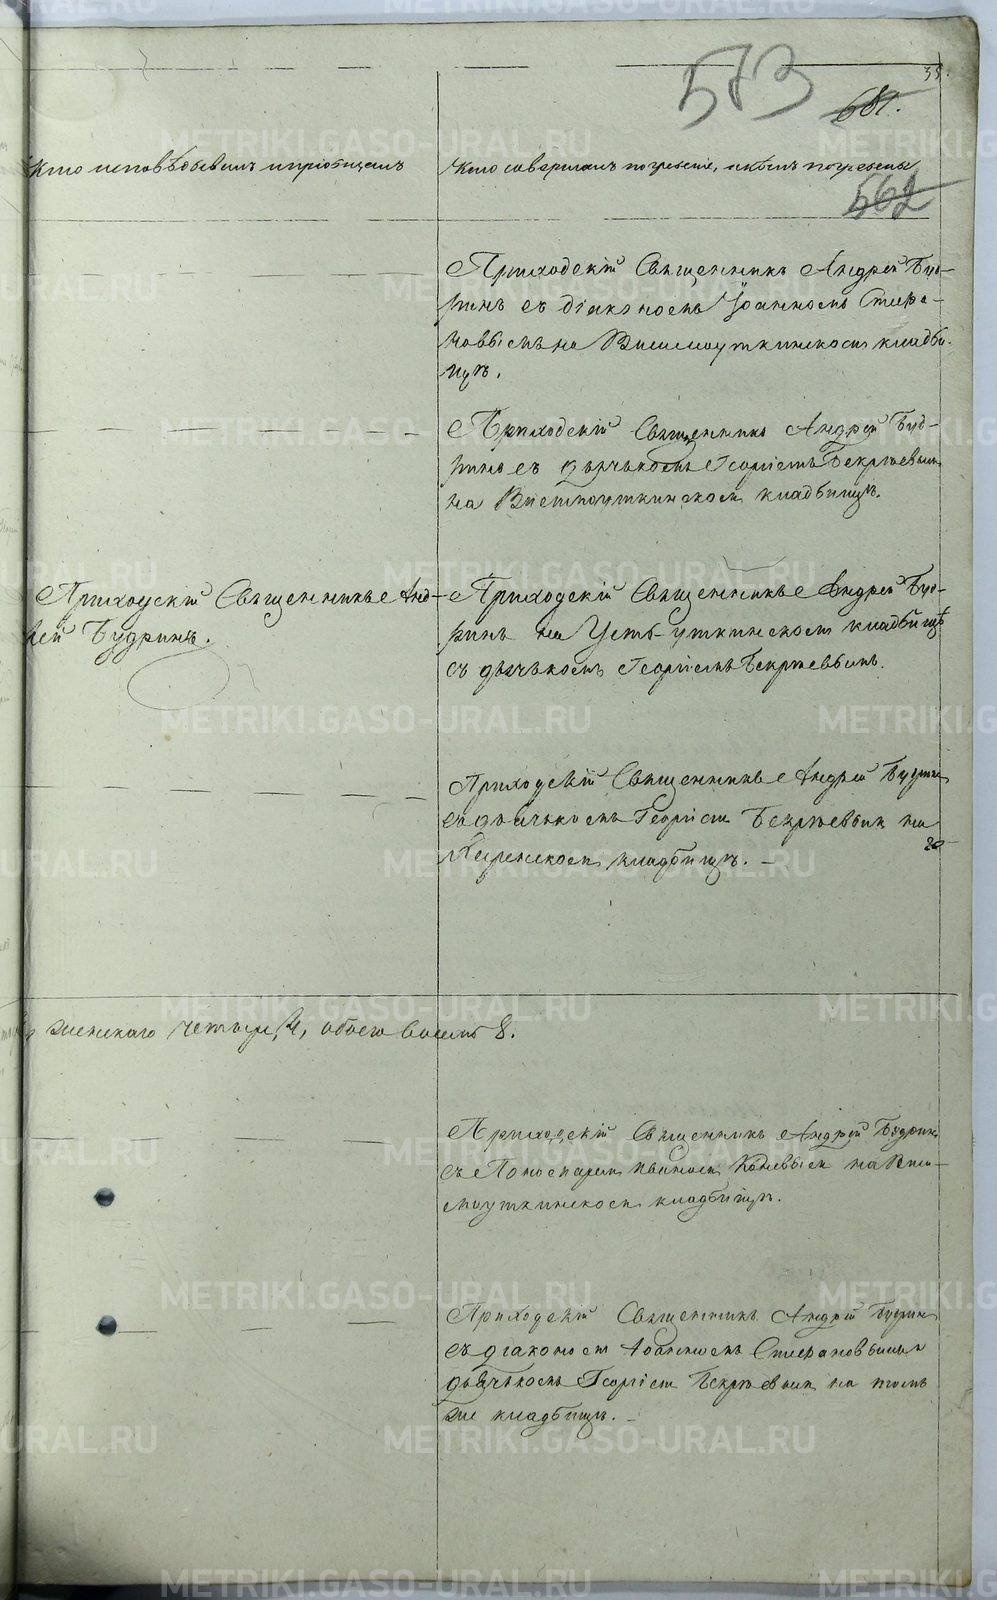 573
35.
681.
Кто исповѣдывалъ и пріобщалъ
Кто совершалъ погребеніе, и гдѣ погребены
562
Приходскій Священникъ Андрей Буд-
ринъ съ діакономъ Іоанномъ Стефа-
новымъ на Висимоуткинскомъ кладби-
щѣ.
Приходскій Священникъ Андрей Буд-
ринъ съ дьячькомъ Георгіемъ
на Висимоуткинскомъ кладбищѣ.
Приходскій Священникъ Анд-
рей Будринъ.
Приходскій Священникъ Андрей Буд-
ринъ на Усть-уткинскомъ кладбищѣ
съ дьячькомъ Георгіемъ
Приходскій Священникъ Андрей Будринъ
съ дьячькомъ Георгіемъ на
кладбищѣ.
женскаго четыре, 4, обоего восемь 8.
Приходскій Священникъ Андрей Будринъ
съ Пономаремъ Иваномъ Коневымъ на Виси-
моуткинскомъ кладбищѣ.
Приходскій Священникъ Андрей Будринъ
съ діакономъ Іоанномъ Стефановымъ и
дьячькомъ Георгіемъ на томъ
же кладбищѣ.
METRIKI.GASO-URAL.RU